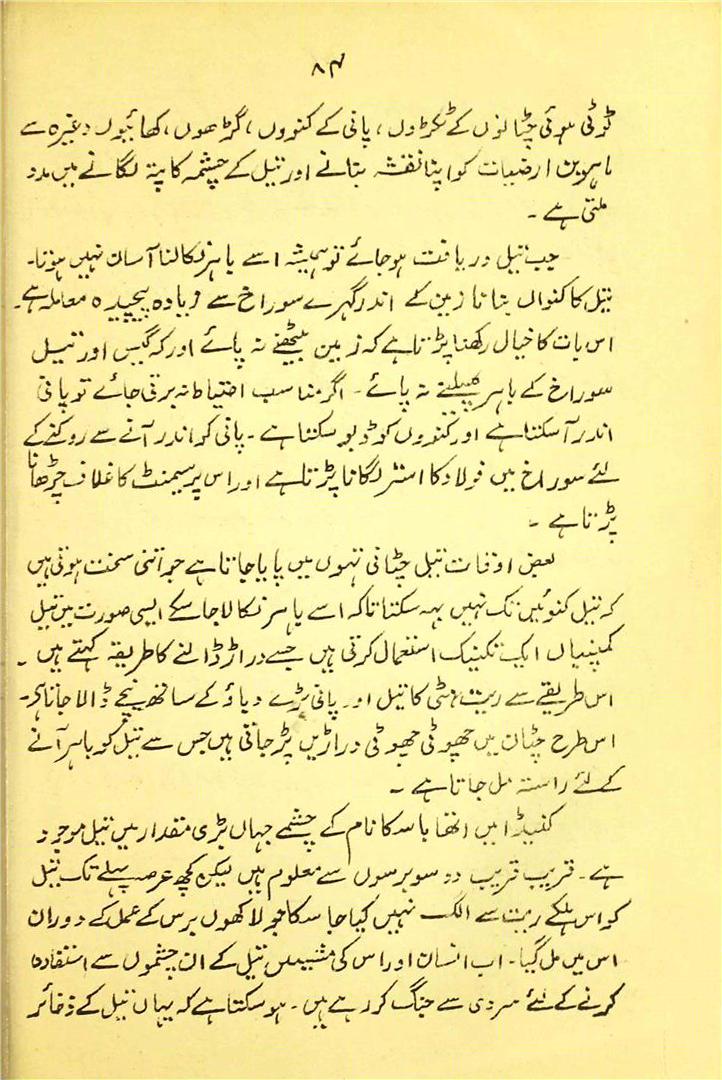 ۸۴
ٹوٹی ہوئی چٹانوں کے ٹکڑوں، پانی کے کنووں، گڑھوں، کھائیوں وغیرہ سے
ماہرین ارضیات کو اپنا نقشہ بنانے اور تیل کے چشمہ کا پتہ لگانے میں مدد
ملتی ہے۔
جب تیل دریافت ہوجائے تو ہمیشہ اسے باہر نکالنا آسان نہیں ہوتا۔
تیل کا کنواں بنانا زمین کے اندر گہرے سوراخ سے زیادہ پیچیدہ معاملہ ہے۔
اس بات کا خیال رکھنا پڑتا ہے کہ زمین بیٹھنے نہ پائے اور کہ گیس اور تیل
سوراخ کے باہر پھیلنے نہ پائے۔ اگر مناسب احتیاط نہ برتی جائے تو پانی
اندر آ سکتا ہے اور کنووں کو ڈبو سکتا ہے۔ پانی کو اندر آنے سے روکنے کے
لئے سوراخ میں فولاد کا استر لگانا پڑتا ہے اور اس پر سیمنٹ کا غلاف چڑھانا
پڑتا ہے۔
بعض اوقات تیل چٹانی تہوں میں پایا جاتا ہے جو اتنی سخت ہوتی ہیں
کہ تیل کنوئیں تک نہیں بہہ سکتا تاکہ اسے باہر نکالا جا سکے ایسی صورت میں تیل
کمپنیاں ایک تکنیک استعمال کرتی ہیں جسے دراڑ ڈالنے کا طریقہ کہتے ہیں۔
اس طریقے سے ریت، مٹی کا تیل اور پانی بڑے دباؤ کے ساتھ نیچے ڈالا جاتا ہے۔
اس طرح چٹان میں چھوٹی چھوٹی دراڑیں پڑ جاتی ہیں جس سے تیل کو باہر آنے
کے لئے راستہ مل جاتا ہے۔
کنیڈا میں اتھاباسکا نام کے چشمے جہاں بڑی مقدار میں تیل موجود
ہے۔ قریب قریب دو سو برسوں سے معلوم ہیں لیکن کچھ عرصہ پہلے تک تیل
کو اس ہلکے ریت سے الگ نہیں کیا جا سکا جو لاکھوں برس کے عمل کے دوران
اس میں مل گیا۔ اب انسان اور اس کی مشینیں تیل کے ان چشموں سے استفادہ
کرنے کے لئے سردی سے جنگ کر رہے ہیں۔ ہو سکتا ہے کہ یہاں تیل کے ذخائر